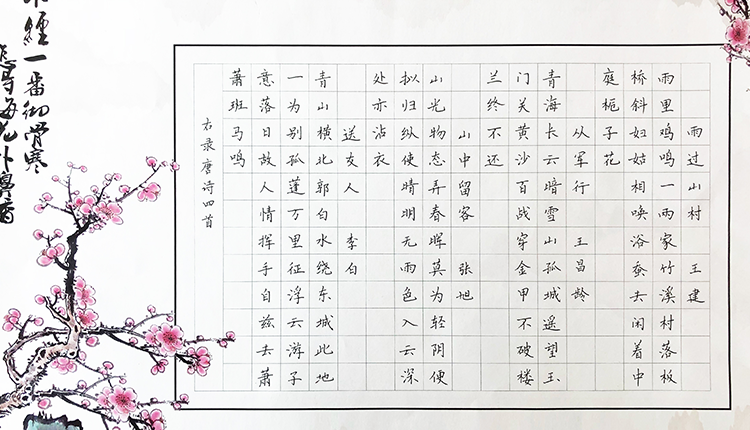 雨过山村 王建
雨里鸡鸣一雨家竹溪村落板
桥斜妇姑相唤浴蚕去闲着中
庭栀子花
从军行 王昌龄
青海长云暗雪山孤城遥望玉
门关黄沙百战穿金甲不破楼
兰终不还
山中留客 张旭
山光物态弄春晖莫为轻阴便
拟归纵使晴明无雨色入云深
处亦沾衣
送友人 李白
青山横北郭白水绕东城此地
一为别孤蓬万里征浮云游子
意落日故人情挥手自兹去萧
萧班马鸣
右录唐诗四首
經一番彻骨寒
梅花扑鼻香